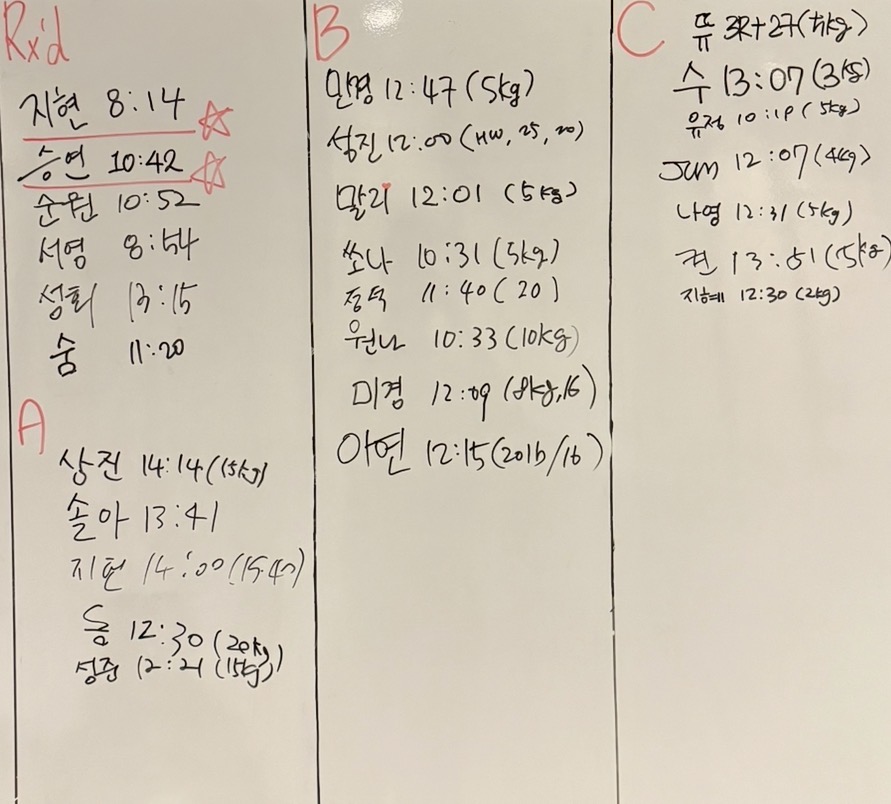 Rx'd
지현 8:14
승연 10:42
순원 10:52
서영 8:54
성희 13:15
숨 11:20
A
상진 14:14 (15kg)
솔아 13:41
지현 14:00 (15.40)
롬 12:30 (20kg)
성준 12:21 (15kg)
B
민경 12:47 (5kg)
성진 12:00 (HW, 25, 20)
말리 12:01 (5kg)
쏘나 10:31 (5kg)
정덕 11:40 (20)
원나 10:33 (10kg)
미경 12:09 (8kg, 16)
아연 12:15 (20lb/16)
C
쀼 3R+27
수 13:07 (3kg)
유정 10:19 (5kg)
JUM 12:07 (4kg)
나영 12:31 (5kg)
전 13:51 (5kg)
지혜 12:30 (2kg)